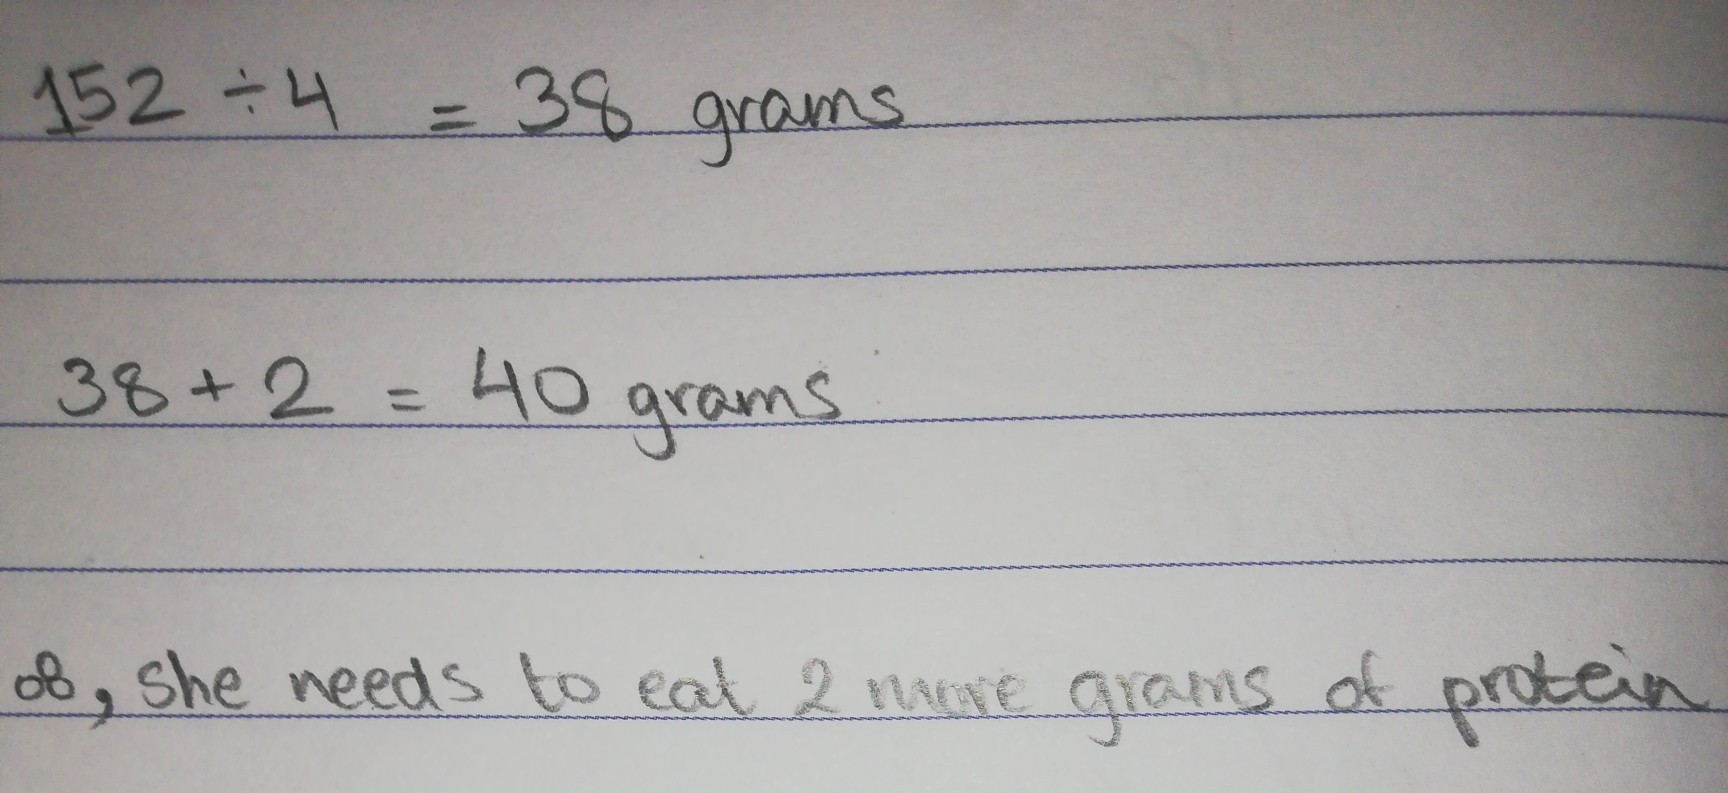 152 ÷ 4 = 38 grams
38 + 2 = 40 grams
she needs to eat 2 more grams of protein